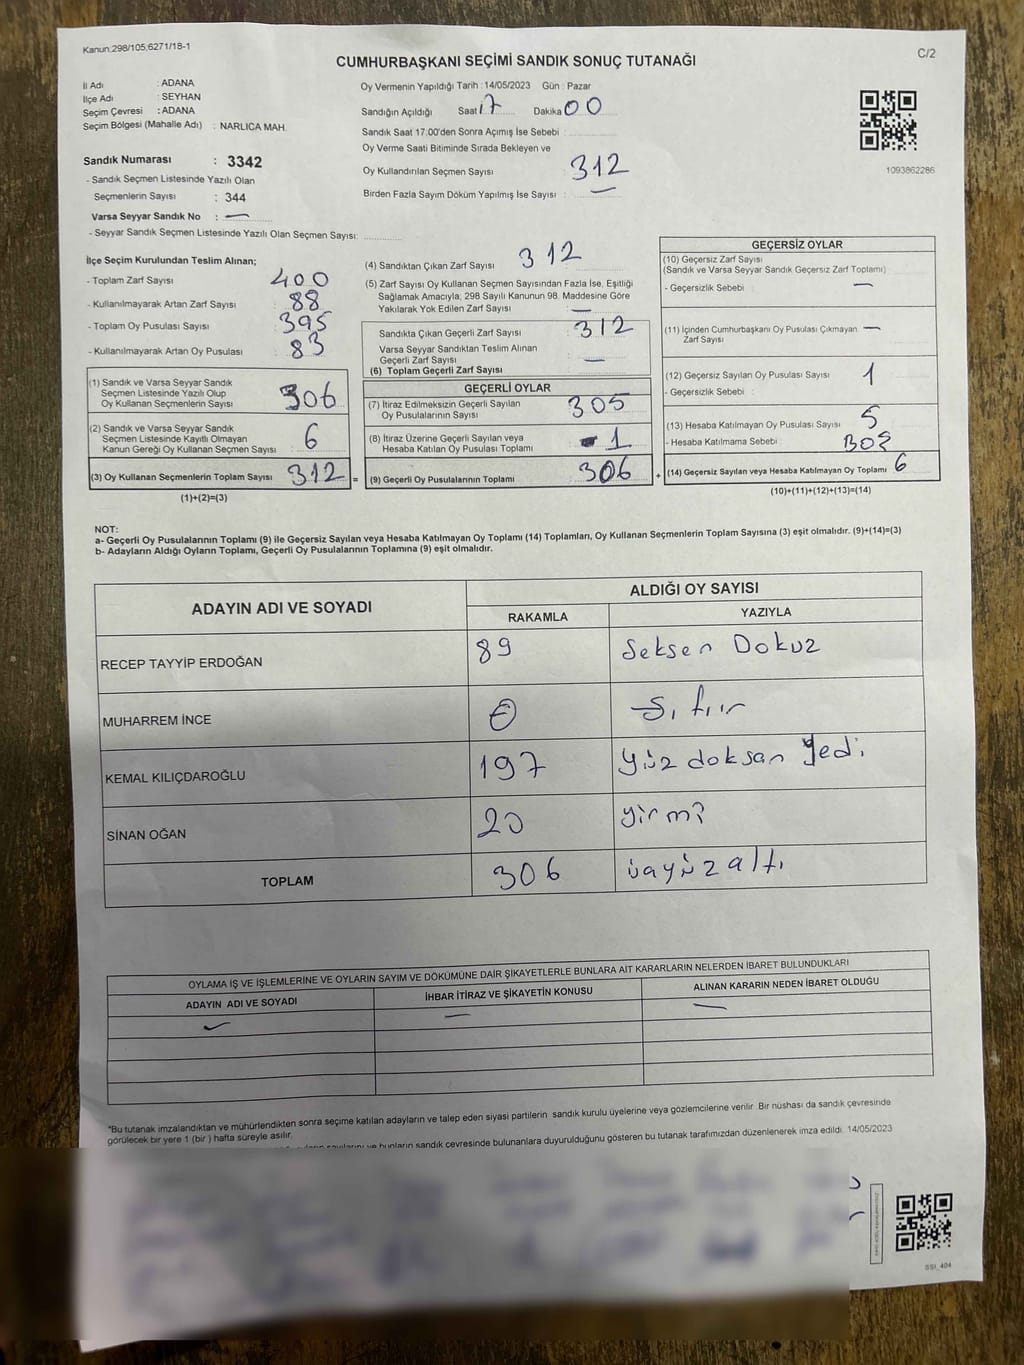 Kanun:298/105;6271/18-1
C/2
CUMHURBAŞKANI SEÇİMİ SANDIK SONUÇ TUTANAĞI
İl Adı : ADANA
İlçe Adı : SEYHAN
Seçim Çevresi : ADANA
Seçim Bölgesi (Mahalle Adı) : NARLICA MAH.
Sandık Numarası : 3342
- Sandık Seçmen Listesinde Yazılı Olan
Seçmenlerin Sayısı : 344
Varsa Seyyar Sandık No : —
- Seyyar Sandık Seçmen Listesinde Yazılı Olan Seçmen Sayısı:
Oy Vermenin Yapıldığı Tarih : 14/05/2023 Gün : Pazar
Sandığın Açıldığı Saat 17 Dakika 00
Sandık Saat 17.00'den Sonra Açımış İse Sebebi :
Oy Verme Saati Bitiminde Sırada Bekleyen ve
Oy Kullandırılan Seçmen Sayısı : 312
Birden Fazla Sayım Döküm Yapılmış İse Sayısı : —
1093862286
İlçe Seçim Kurulundan Teslim Alınan;
- Toplam Zarf Sayısı 400
- Kullanılmayarak Artan Zarf Sayısı 88
- Toplam Oy Pusulası Sayısı 395
- Kullanılmayarak Artan Oy Pusulası 83
(1) Sandık ve Varsa Seyyar Sandık
Seçmen Listesinde Yazılı Olup
Oy Kullanan Seçmenlerin Sayısı 306
(2) Sandık ve Varsa Seyyar Sandık
Seçmen Listesinde Kayıtlı Olmayan
Kanun Gereği Oy Kullanan Seçmen Sayısı 6
(3) Oy Kullanan Seçmenlerin Toplam Sayısı 312 =
(1)+(2)=(3)
(4) Sandıktan Çıkan Zarf Sayısı 312
(5) Zarf Sayısı Oy Kullanan Seçmen Sayısından Fazla İse, Eşitliği
Sağlamak Amacıyla; 298 Sayılı Kanunun 98. Maddesine Göre
Yakılarak Yok Edilen Zarf Sayısı —
Sandıkta Çıkan Geçerli Zarf Sayısı 312
Varsa Seyyar Sandıktan Teslim Alınan
Geçerli Zarf Sayısı —
(6) Toplam Geçerli Zarf Sayısı
GEÇERLİ OYLAR
(7) İtiraz Edilmeksizin Geçerli Sayılan
Oy Pusulalarının Sayısı 305
(8) İtiraz Üzerine Geçerli Sayılan veya
Hesaba Katılan Oy Pusulası Toplamı 1
(9) Geçerli Oy Pusulalarının Toplamı 306 +
GEÇERSİZ OYLAR
(10) Geçersiz Zarf Sayısı
(Sandık ve Varsa Seyyar Sandık Geçersiz Zarf Toplamı)
- Geçersizlik Sebebi : —
(11) İçinden Cumhurbaşkanı Oy Pusulası Çıkmayan —
Zarf Sayısı
(12) Geçersiz Sayılan Oy Pusulası Sayısı 1
- Geçersizlik Sebebi :
(13) Hesaba Katılmayan Oy Pusulası Sayısı 5
- Hesaba Katılmama Sebebi :
(14) Geçersiz Sayılan veya Hesaba Katılmayan Oy Toplamı 6
(10)+(11)+(12)+(13)=(14)
NOT:
a- Geçerli Oy Pusulalarının Toplamı (9) ile Geçersiz Sayılan veya Hesaba Katılmayan Oy Toplamı (14) Toplamları, Oy Kullanan Seçmenlerin Toplam Sayısına (3) eşit olmalıdır. (9)+(14)=(3)
b- Adayların Aldığı Oyların Toplamı, Geçerli Oy Pusulalarının Toplamına (9) eşit olmalıdır.
ADAYIN ADI VE SOYADI ALDIĞI OY SAYISI
RAKAMLA YAZIYLA
RECEP TAYYİP ERDOĞAN 89 Seksen Dokuz
MUHARREM İNCE 0 Sıfır
KEMAL KILIÇDAROĞLU 197 Yüz doksan Yedi
SİNAN OĞAN 20 Yirmi
TOPLAM 306 üçyüz altı
OYLAMA İŞ VE İŞLEMLERİNE VE OYLARIN SAYIM VE DÖKÜMÜNE DAİR ŞİKAYETLERLE BUNLARA AİT KARARLARIN NELERDEN İBARET BULUNDUKLARI
ADAYIN ADI VE SOYADI İHBAR İTİRAZ VE ŞİKAYETİN KONUSU ALINAN KARARIN NEDEN İBARET OLDUĞU
— — —
*Bu tutanak imzalandıktan ve mühürlendikten sonra seçime katılan adayların ve talep eden siyasi partilerin sandık kurulu üyelerine veya gözlemcilerine verilir. Bir nüshası da sandık çevresinde
görülecek bir yere 1 (bir ) hafta süreyle asılır.
sayılarını ve bunların sandık çevresinde bulunanlara duyurulduğunu gösteren bu tutanak tarafımızdan düzenlenerek imza edildi. 14/05/2023
SSİ_404